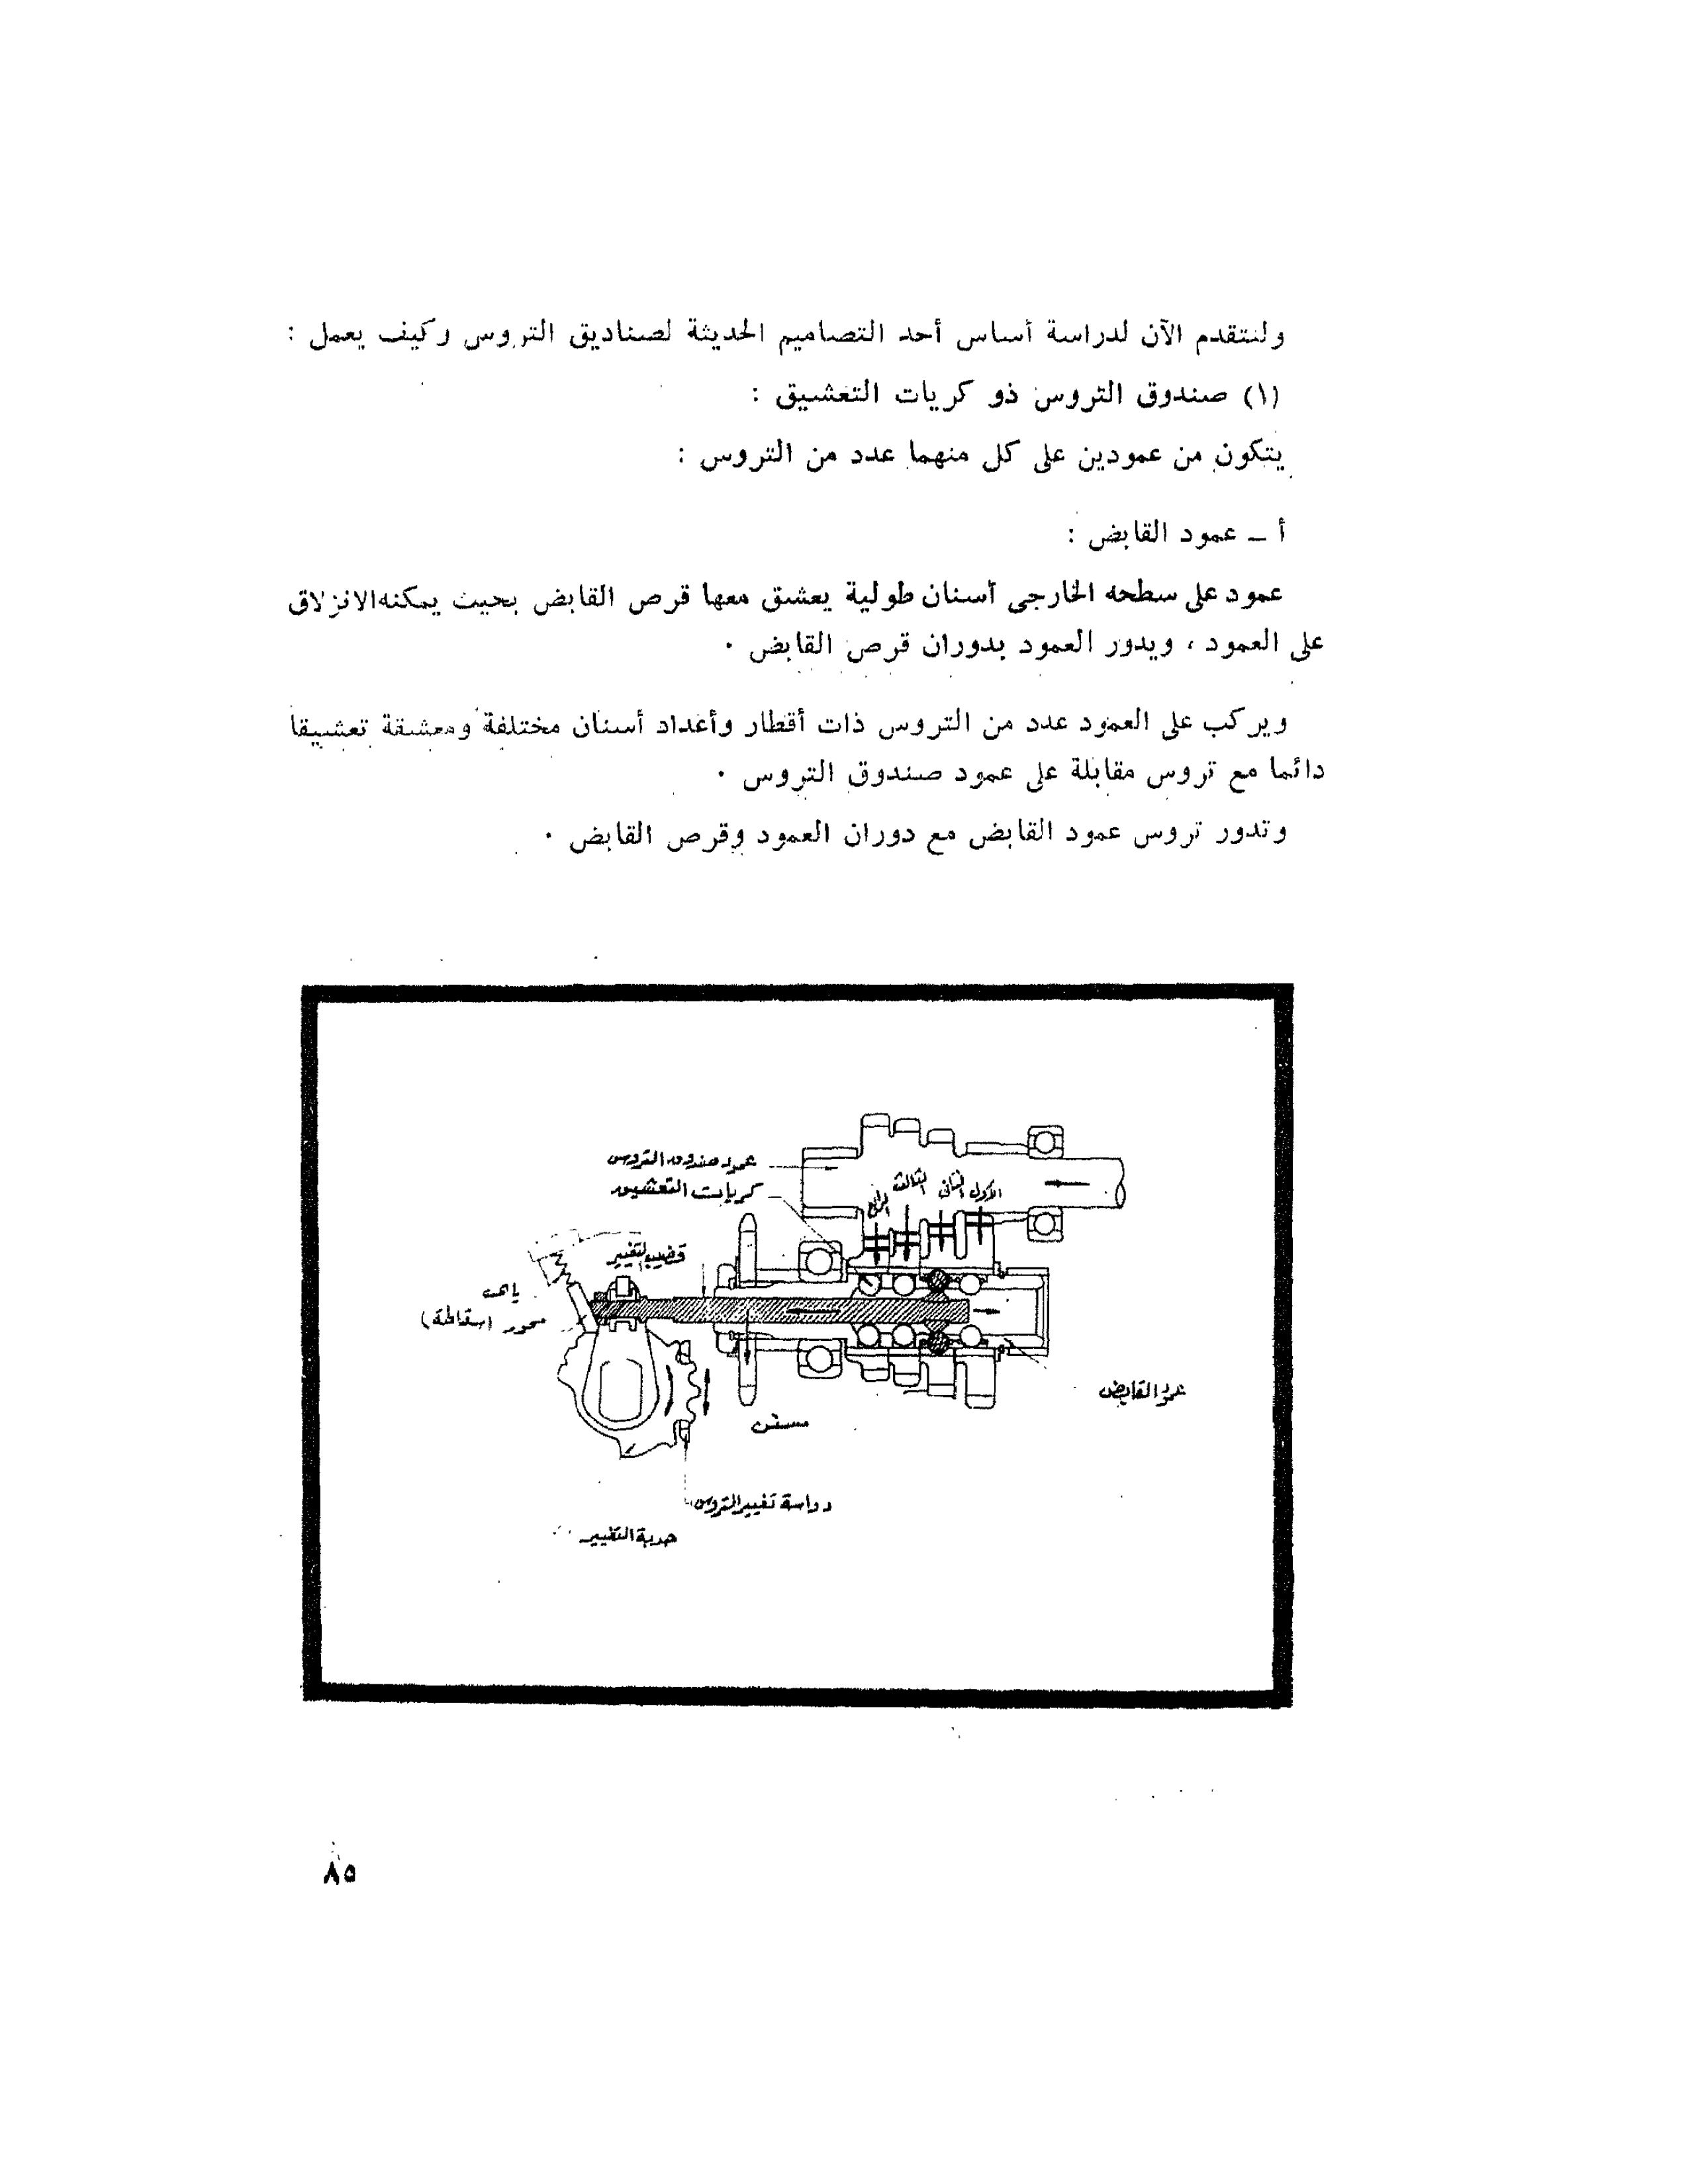 ولنتقدم الآن لدراسة أساس أحد التصاميم الحديثة لصناديق التروس وكيف يعمل :
(١) صندوق التروس ذو كريات التعشيق :
يتكون من عمودين على كل منهما عدد من التروس :
أ ـ عمود القابض :
عمود على سطحه الخارجى أسنان طولية يعشق معها قرص القابض بحيث يمكنه الانزلاق
على العمود ، ويدور العمود بدوران قرص القابض ٠
ويركب على العمود عدد من التروس ذات أقطار وأعداد أسنان مختلفة ومعشقة تعشيقا
دائما مع تروس مقابلة على عمود صندوق التروس ٠
وتدور تروس عمود القابض مع دوران العمود وقرص القابض ٠
عمود صندوق التروس
كريات التعشيق
الأول
الثانى
الثالث
الرابع
قضيب التغيير
ياى
محور (سقاطة)
عمود القابض
مسنن
دواسة تغيير التروس
حدبة التغيير
٨٥